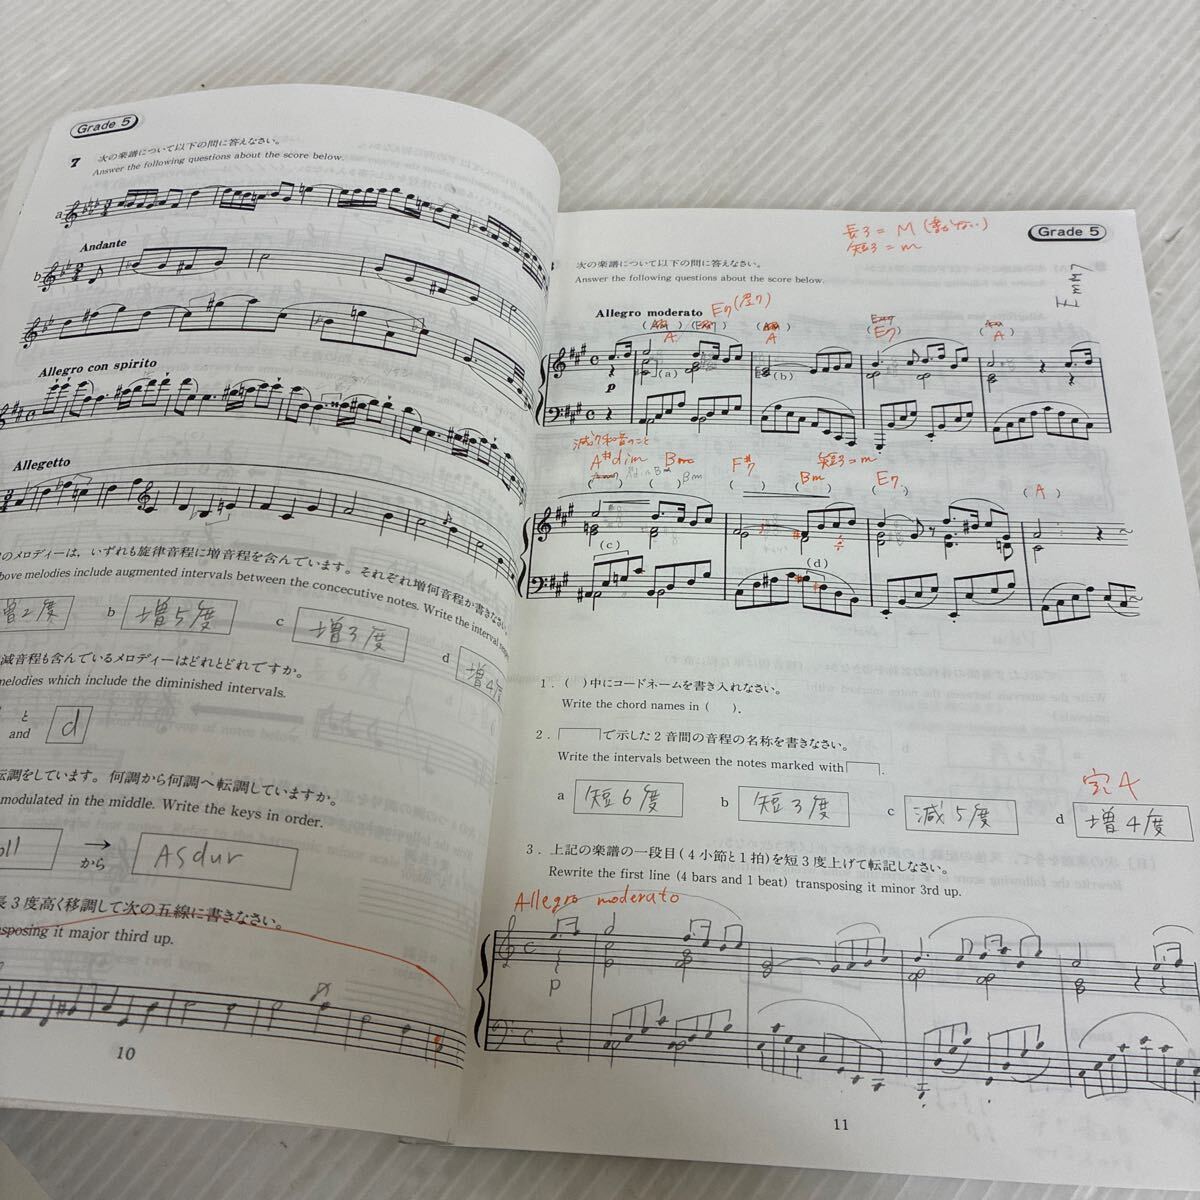 Grade 5
7 次の楽譜について以下の問に答えなさい。
Answer the following questions about the score below.
a
Andante
b
Allegro con spirito
Allegetto
のメロディーは，いずれも旋律音程に増音程を含んでいます。それぞれ増何音程か書きなさい。
bove melodies include augmented intervals between the concecutive notes. Write the interval
増2度 b 増5度 c 増3度 d 増4度
減音程も含んでいるメロディーはどれとどれですか。
melodies which include the diminished intervals.
と
and d
転調をしています。何調から何調へ転調していますか。
modulated in the middle. Write the keys in order.
oll → から Asdur
長3度高く移調して次の五線に書きなさい。
sposing it major third up.
10
長3 = M
短3 = m
Grade 5
次の楽譜について以下の問に答えなさい。
Answer the following questions about the score below.
EmM7
Allegro moderato E7
A A E7 A
p (a) (b)
減7和音のこと
短3=m
A#dim Bm F#7 Bm E7
Bm
(A)
(c) (d)
1．( )中にコードネームを書き入れなさい。
Write the chord names in ( ).
2．で示した2音間の音程の名称を書きなさい。
Write the intervals between the notes marked with .
完4
a 短6度 b 短3度 c 減5度 d 増4度
3．上記の楽譜の一段目(4小節と1拍)を短3度上げて転記しなさい。
Rewrite the first line (4 bars and 1 beat) transposing it minor 3rd up.
Allegro moderato
p
11